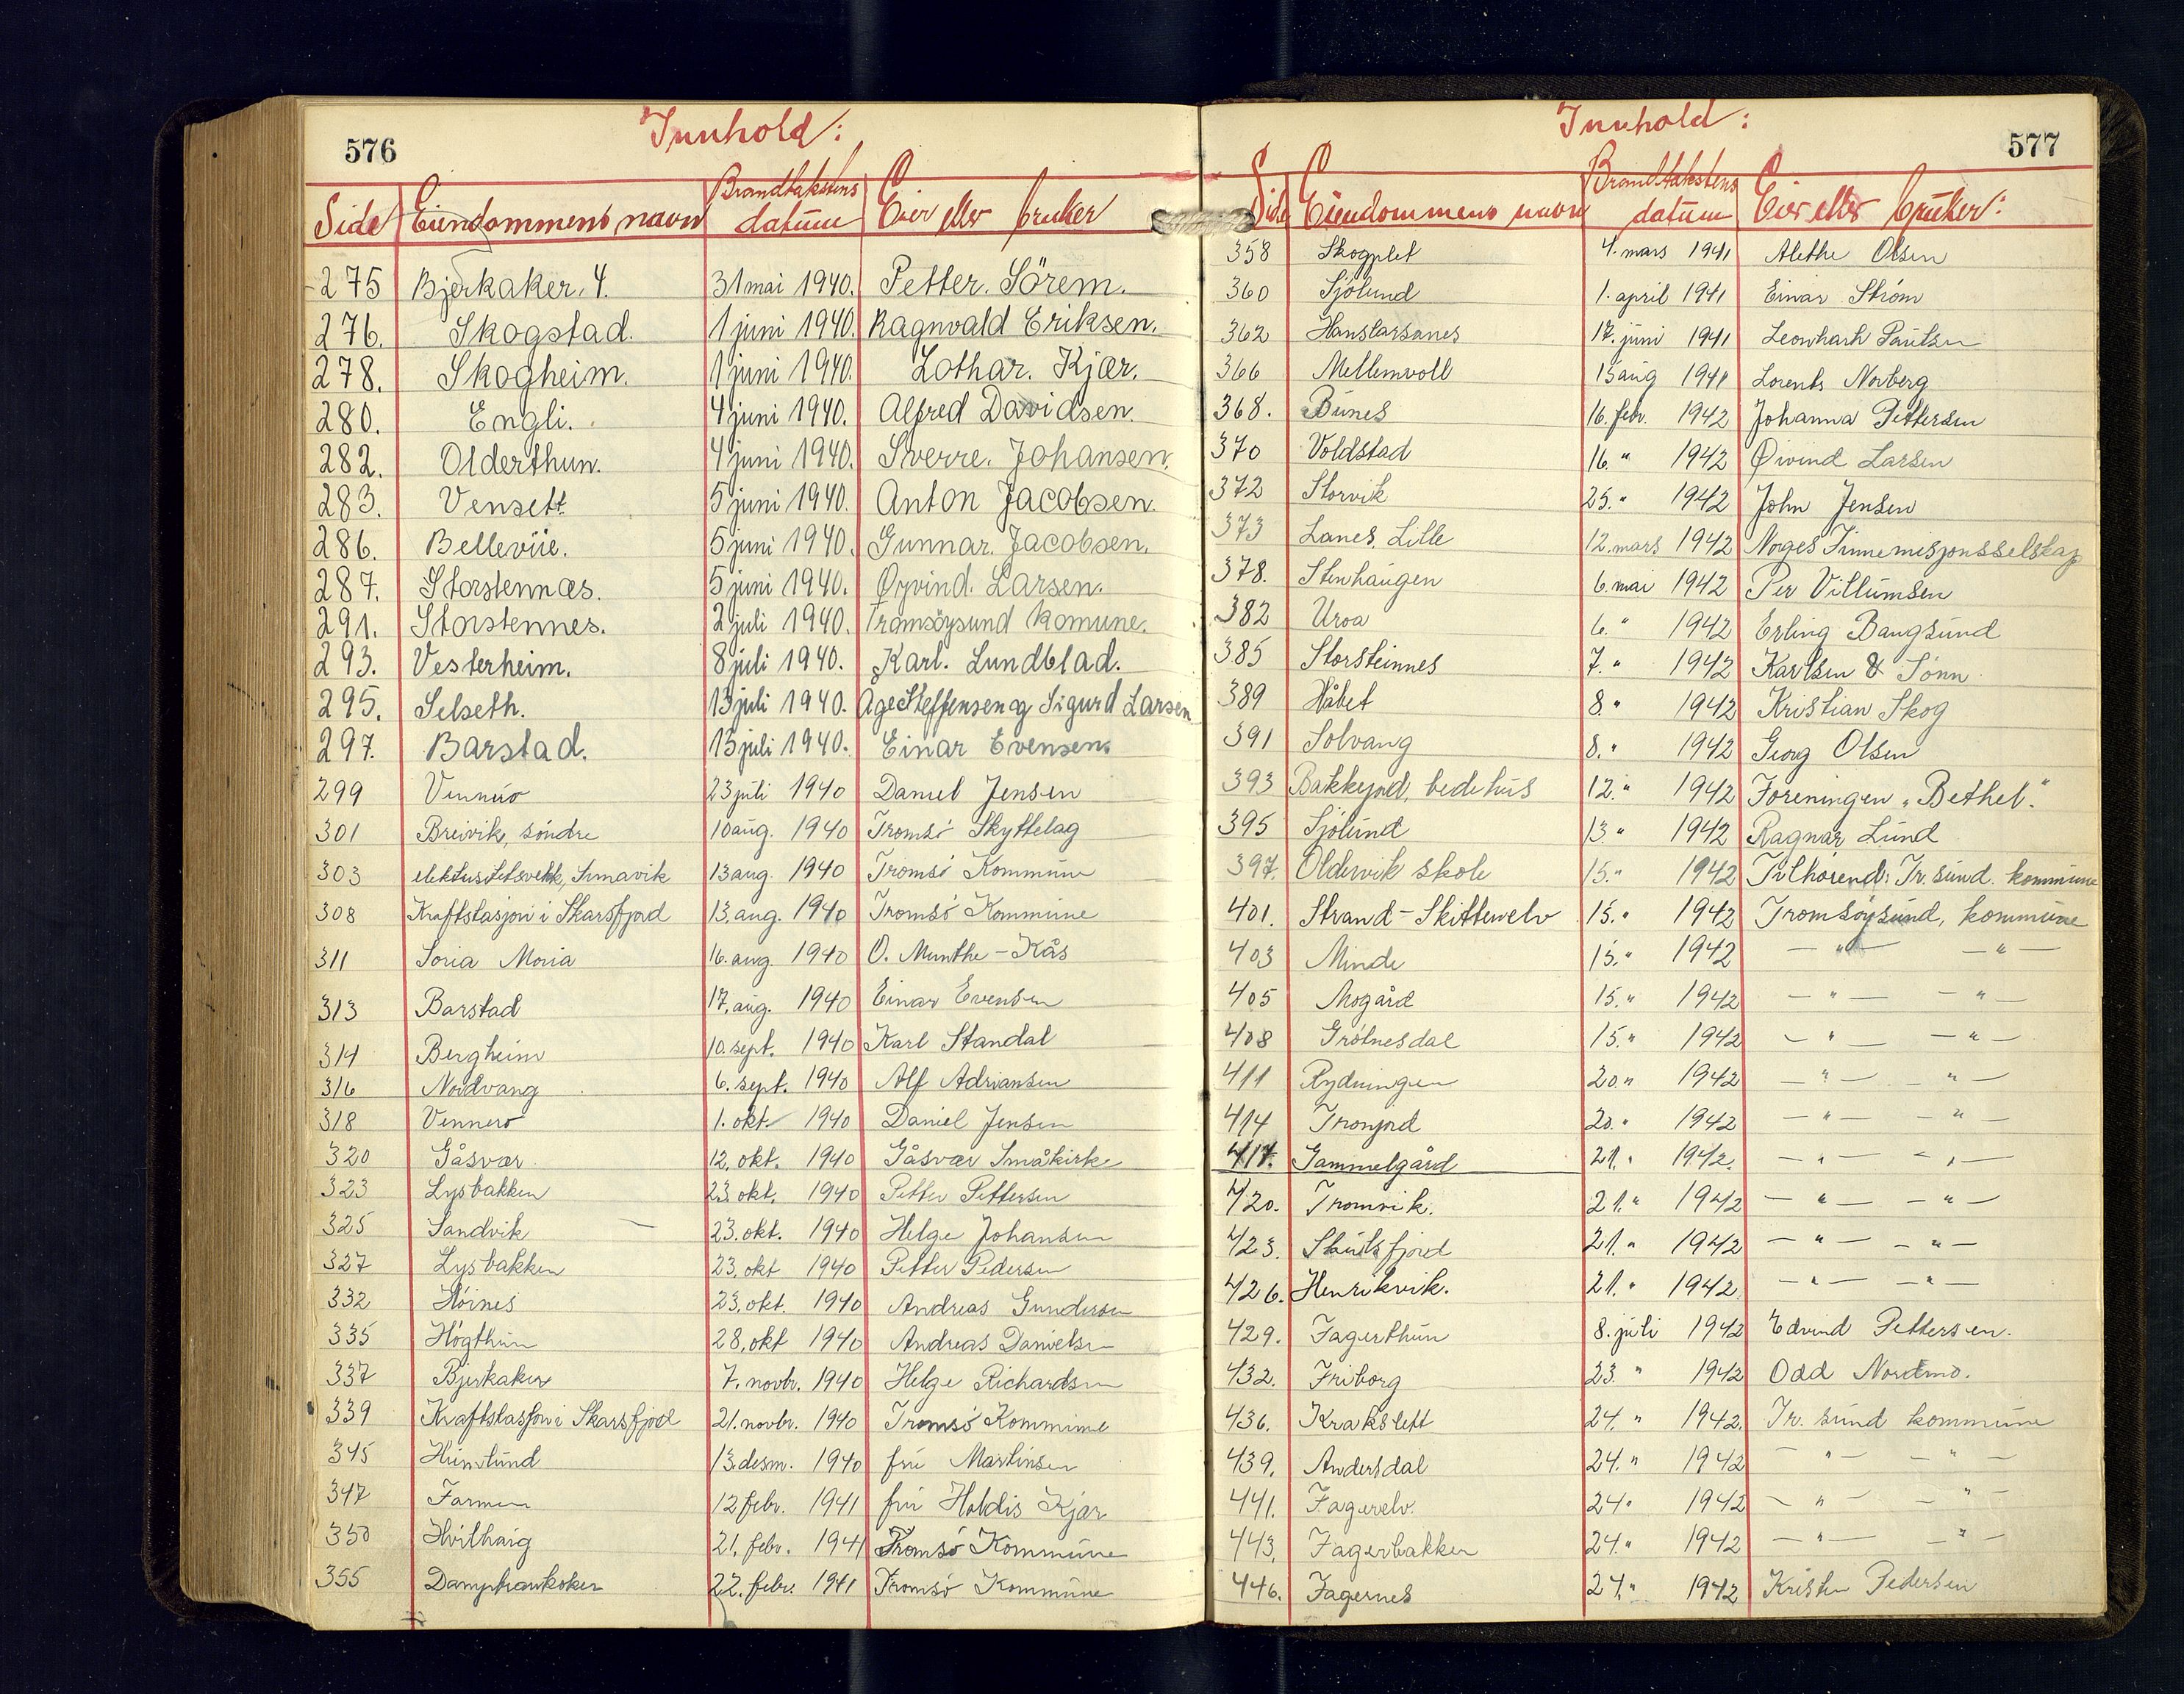 576
Innhold:
Side Eiendommens navn Brandtakstens datum Eier eller bruker
275 Bjerkaker. 4. 31 mai 1940. Petter. Sörem.
276. Skogstad. 1 juni 1940. Ragnvald Eriksen.
278. Skogheim. 1 juni 1940. Lothar. Kjær.
280. Engli. 4 juni 1940. Alfred Davidsen.
282. Olderthun. 4 juni 1940. Sverre. Johansen.
283. Vensett. 5 juni 1940. Anton Jacobsen.
286. Bellevüe. 5 juni 1940. Gunnar. Jacobsen.
287. Storstennæs. 5 juni 1940. Øyvind. Larsen.
291. Storstennes. 2 juli 1940. Tromsöysund komune.
293. Vesterheim. 8 juli 1940. Karl. Lundblad.
295. Selseth. 13 juli 1940. Age Steffensen og Sigurd Larsen
297. Barstad. 15 juli 1940. Einar Evensen.
299 Vennero 23 juli 1940 Daniel Jensen
301 Breivik, söndre 10 aug. 1940 Tromsö Skyttelag
303 13 aug. 1940 Tromsö Kommune
308 Kraftstasjon i Skarsfjord 13. aug. 1940 Tromsö Kommune
311 Soria Moria 16. aug. 1940 O. Munthe-Kås
313 Barstad 17. aug. 1940 Einar Evensen
314 Bergheim 10. sept. 1940 Karl Standal
316 Nordvang 6. sept. 1940 Alf Adriansen
318 Vennero 1. okt. 1940 Daniel Jensen
320 Gåsvær 12. okt. 1940 Gåsvær Småkirke
323 Lysbakken 23. okt. 1940 Petter Pettersen
325 Sandvik 23. okt. 1940 Helge Johansen
327 Lysbakken 23. okt 1940 Petter Pedersen
332 Höines 23. okt. 1940 Andreas Gundersen
335 Högthun 28. okt 1940 Andreas Danielsen
337 Bjerkaker 7. novbr. 1940 Helge Richardsen
339 Kraftstasjon i Skarsfjord 21. novbr. 1940 Tromsö Kommune
345 13. desm. 1940 frü Martinsen
347 Farmen 12 febr. 1941 frü Haldis Kjær
350 Hvilhaug 21. febr. 1941 Tromsö Kommune
355 Damptrankokeri 22. febr. 1941 Tromsö Kommune
577
Innhold:
Side Eiendommens navn Brandtakstens datum Eier eller brüker:
358 Skogplet 4. mars 1941 Alethe Olsen
360 Sjölund 1. april 1941 Einar Ström
362 Hanslarsanes 17. juni 1941
366 Mellemvoll 15 aug 1941 Lorents Norberg
368. Bünes 16. febr. 1942 Johanna Pettersen
370 Voldstad 16. " 1942 Øivind Larsen
372 Storvik 25. " 1942 John Jensen
373 Lanes. Lille 12. mars 1942 Norges Finnemisjonsselskap
378. Stenhaugen 6. mai 1942 Per Villumsen
382 Uroa 6. " 1942 Erling Bangsund
385 Storsteinnes 7. " 1942 Karlsen & Sönn
389 Håbet 8. " 1942 Kristian Skog
391 Solvang 8. " 1942 Georg Olsen
393 Bakkejord, bedehus 12. " 1942 Foreningen „Bethel."
395 Sjölund 13. " 1942 Ragnar Lund
397. Oldervik skole 15. " 1942 Tilhörend: Tr. sund. kommune
401. Strand-Skittenelv 15. " 1942 Tromsöysund, kommune
403 Minde 15. " 1942 — " — — " —
405 Mogård 15. " 1942 — " — — " —
408 Grötnesdal 15. " 1942 — " — — " —
411 Rydningen 20. " 1942 — " — — " —
414 Tronjord 20. " 1942 — " — — " —
417. Gammelgård 21. " 1942. — " — — " —
420. Tromvik. 21. " 1942 — " — — " —
423. Skulsfjord 21. " 1942 — " — — " —
426. Henrikvik. 21. " 1942. — " — — " —
429. Fagerthun 8. juli 1942 Edvind Pettersen.
432. Friborg 23. " 1942 Odd Nordmo.
436. Krakslett 24. " 1942. Tr. sund kommune
439. Andersdal 24. " 1942 — " — — " —
441. Fagerelv. 24 " 1942 — " — — " —
443. Fagerbakken 24. " 1942 — " — — " —
446. Fagernes 24. " 1942 Kristen Pedersen